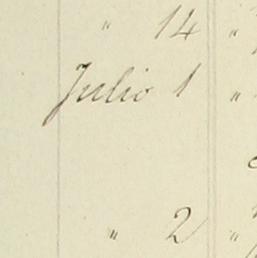 " 14 "
Julio 1 "
" 2 "